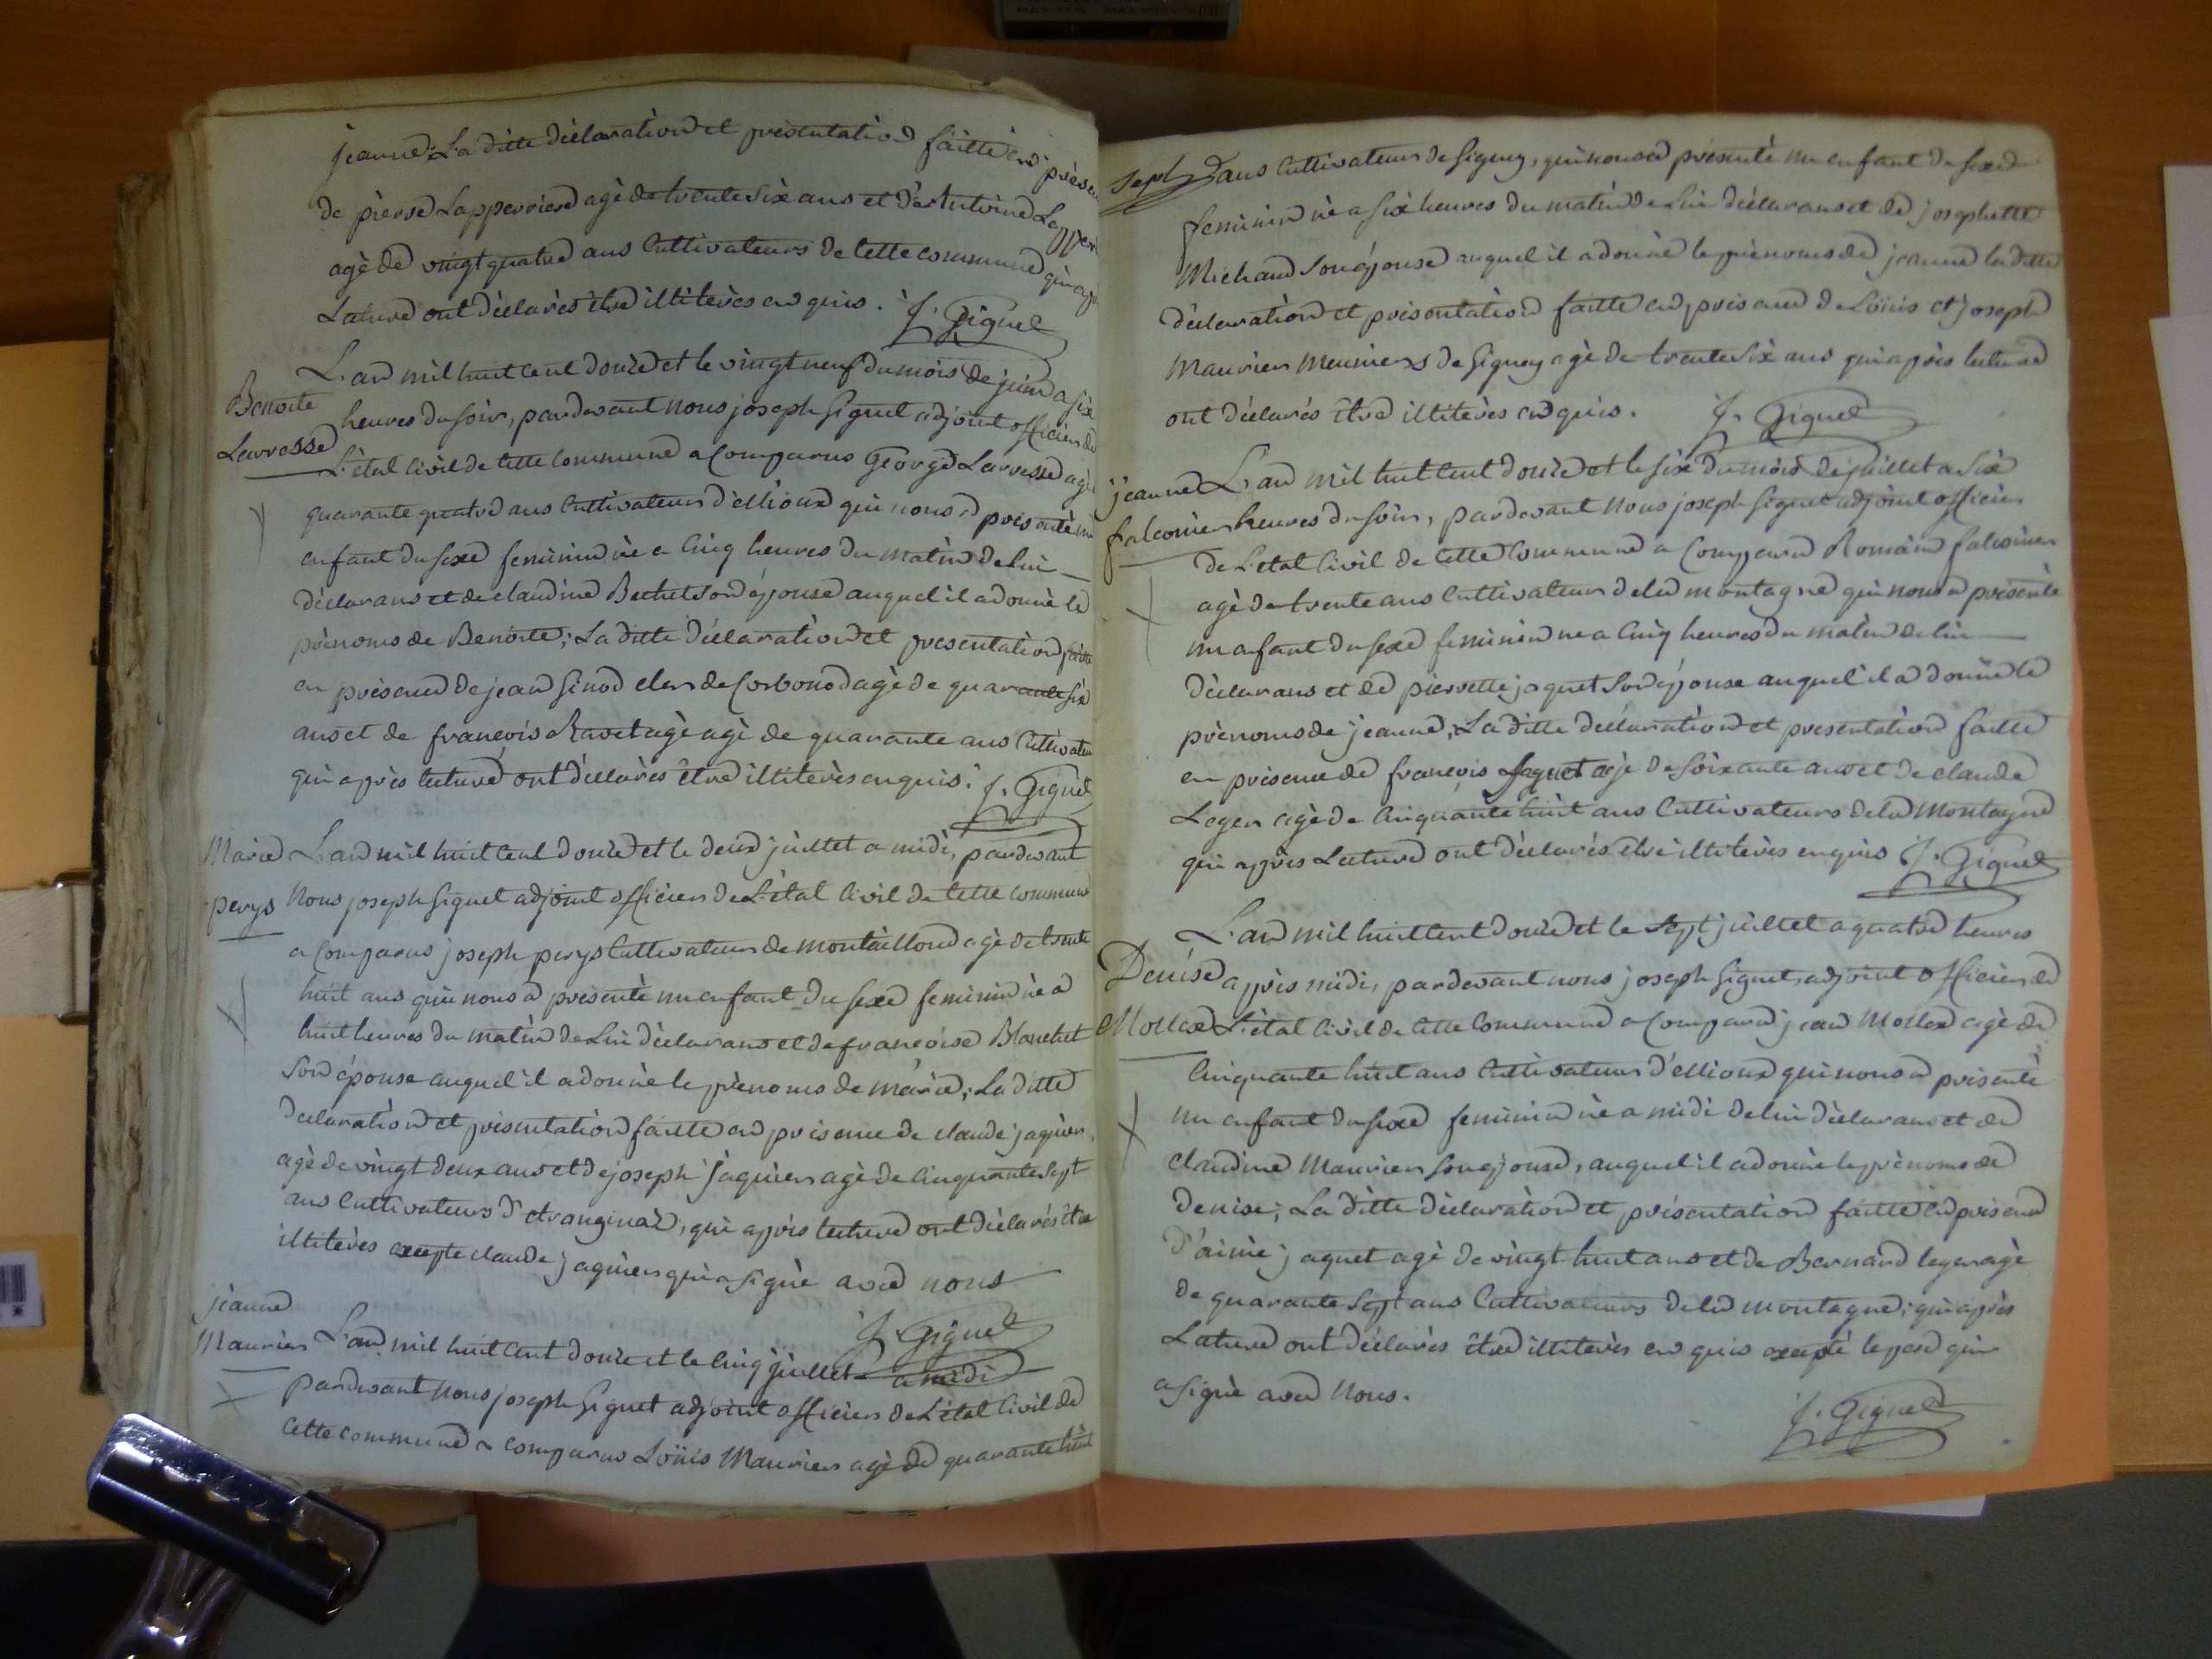 jeanne. La ditte déclaration et présentation faitte en
de pierre Lapperriere agé de trente six ans et d'Antoine
agé de vingt quatre ans Cultivateurs de cette commune
Lecture ont déclarés être illiterès enquis. J. Giguet
L'an mil huit cent douze et le vingt neuf du mois de juin a six
Benoite
heures du soir, pardevant nous joseph Giguet adjoint officier de
Larresse
L'état Civil de cette Commune a Comparus George Larresse agé
quarante quatre ans Cultivateur d'ellioux qui nous a présenté un
enfant du sexe feminin né a Cinq heures du matin de lui
déclarans et de claudine Bechet son épouse auquel il a donné le
prénoms de Benoite; La ditte déclaration et presentation faitte
en présence de jean Sinod clerc de Corbonod agé de quarante six
ans et de françois Ravet agé agé de quarante ans Cultivateur
qui après lecture ont déclarés être illiterès enquis. J. Giguet
Marie
L'an mil huit Cent douze et le deux juillet a midi, pardevant
perys
Nous joseph Giguet adjoint officier de L'état Civil de cette commune
a Comparus joseph perys Cultivateur de montaillond agé de trente
huit ans qui nous a présenté un enfant du sexe feminin né a
huit heures du matin de Lui déclarans et de françoise Blanchet
Son épouse auquel il a donné le prénoms de marie; La ditte
declaration et présentation faitte en présence de claude jaquier
agé de vingt deux ans et de joseph jaquier agé de Cinquante sept
ans Cultivateurs d'etranginaz, qui après lecture ont déclarés être
illiterès excepte claude jaquier qui a signé avec nous
J. Giguet
jeanne
Maurier
L'an mil huit Cent douze et le Cinq juillet a midi
Pardevant nous joseph Giguet adjoint officier de L'état Civil de
cette commune a comparus Loüis Maurier agé de quarante huit
Sept
ans Cultivateur de Signey, qui nous a présenté un enfant du sexe
feminin né a Six heures du matin de Lui déclarans et de josephette
Michaud son épouse auquel il a donné le prénoms de jeanne la ditte
déclaration et présentation faitte en présence de Loüis et joseph
Maurier Meuniers de Signey agé de trente six ans qui après lecture
ont déclarés être illiterès enquis. J. Giguet
jeanne
L'an mil huit Cent douze et le six du mois de juillet a Six
falconier
heures du soir, pardevant Nous joseph Giguet adjoint officier
de L'état Civil de cette Commune a Comparu Romain falconier
agé de trente ans Cultivateur de la montagne qui nous a présenté
un enfant du sexe feminin né a Cinq heures du matin de lui
déclarans et de pierrette jaquet son épouse auquel il a donné le
prénoms de jeanne; La ditte déclaration et presentation faitte
en présence de françois Jaquet agé de soixante ans et de claude
Leger agé de Cinquante huit ans Cultivateurs de la Montagne
qui après Lecture ont déclarés être illiterès enquis J. Giguet
L'an mil huit Cent douze et le Sept juillet a quatre heures
Denise
après midi, pardevant nous joseph Giguet, adjoint officier de
Mollex
L'état Civil de cette Commune a Comparu jean Mollex agé de
Cinquante huit ans Cultivateur d'ellioux qui nous a présenté
un enfant du sexe feminin né a midi de lui déclarans et de
claudine Maurier son épouse, auquel il a donné le prénoms de
Denise; La ditte déclaration et présentation faitte en présence
d'aimé jaquet agé de vingt huit ans et de Bernard leger agé
de quarante Sept ans Cultivateurs de la montagne; qui après
Lecture ont déclarés être illiterès enquis excepté leger qui
a signé avec Nous.
J. Giguet